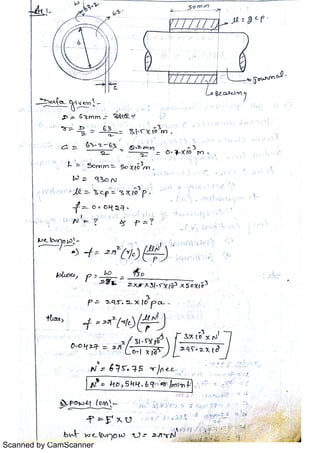 50mm
W
63.2
63.
μ = 3cp.
d
c
Journal.
Bearing
Data given:-
D = 63mm
r = D/2 = 63/2 = 31.5×10⁻³m.
C = 63.2-63/2 = 0.2mm/2 = 0.1×10⁻³m.
L = 50mm = 50×10⁻³m.
W = 930N
μ = 3cp = 3×10⁻³p.
f = 0.0427.
N' = ? & P = ?
We know:-
a) f = 2π²(r/c)(μN'/P)
where, P = W/2rL = 930/2×31.5×10⁻³×50×10⁻³
P = 295.2×10³pa.
Then, f = 2π²(r/c)(μN'/P)
0.0427 = 2π²(31.5×10⁻³/0.1×10⁻³)[3×10⁻³×N'/295.2×10³]
N' = 675.75 r/sec
N' = 40,544.69
Power loss:-
P = F'×U
but we know U = 2πrN'
Scanned by CamScanner